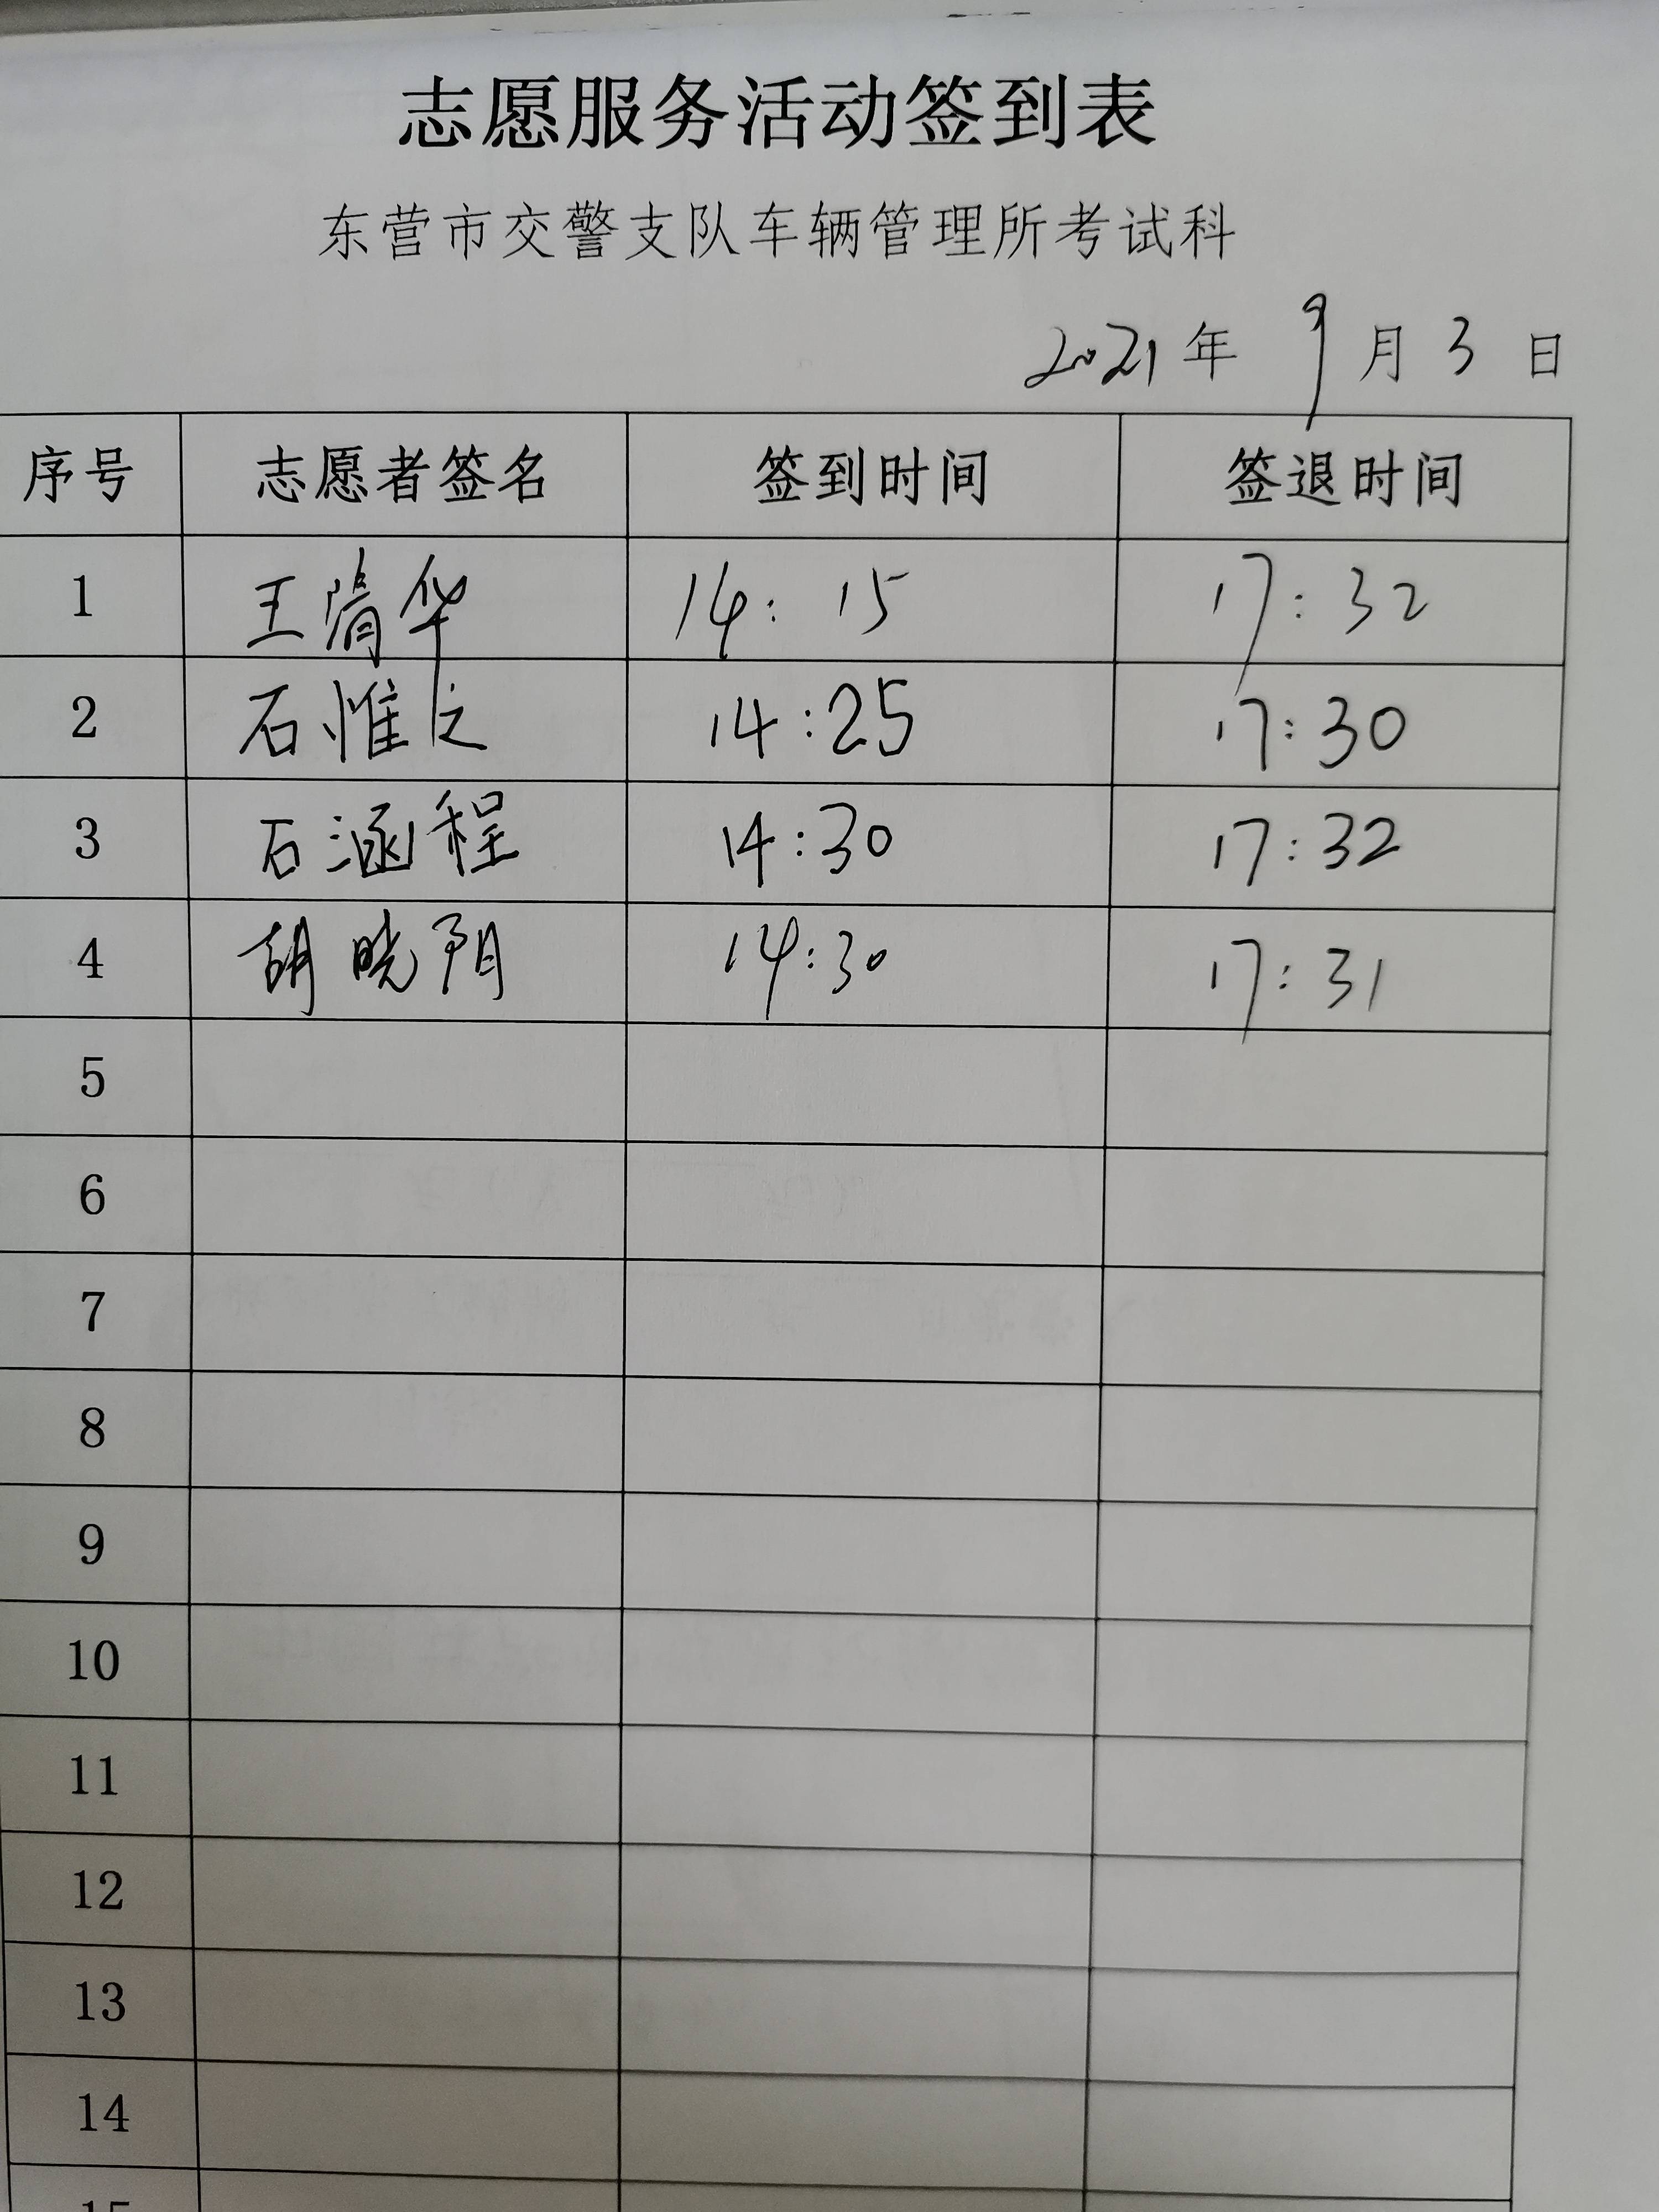 志愿服务活动签到表
东营市交警支队车辆管理所考试科
2021年 9月3日
序号 志愿者签名 签到时间 签退时间
1 王清华 14:15 17:32
2 石惟之 14:25 17:30
3 石涵程 14:30 17:32
4 胡晓阴 14:30 17:31
5
6
7
8
9
10
11
12
13
14
15